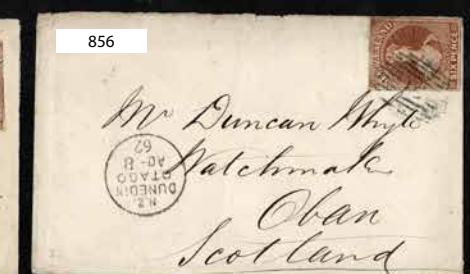 856
SIX PENCE
Mr Duncan Whyte
Watchmaker
Oban
Scotland
N.Z.
DUNEDIN
OTAGO
AU - 8
62